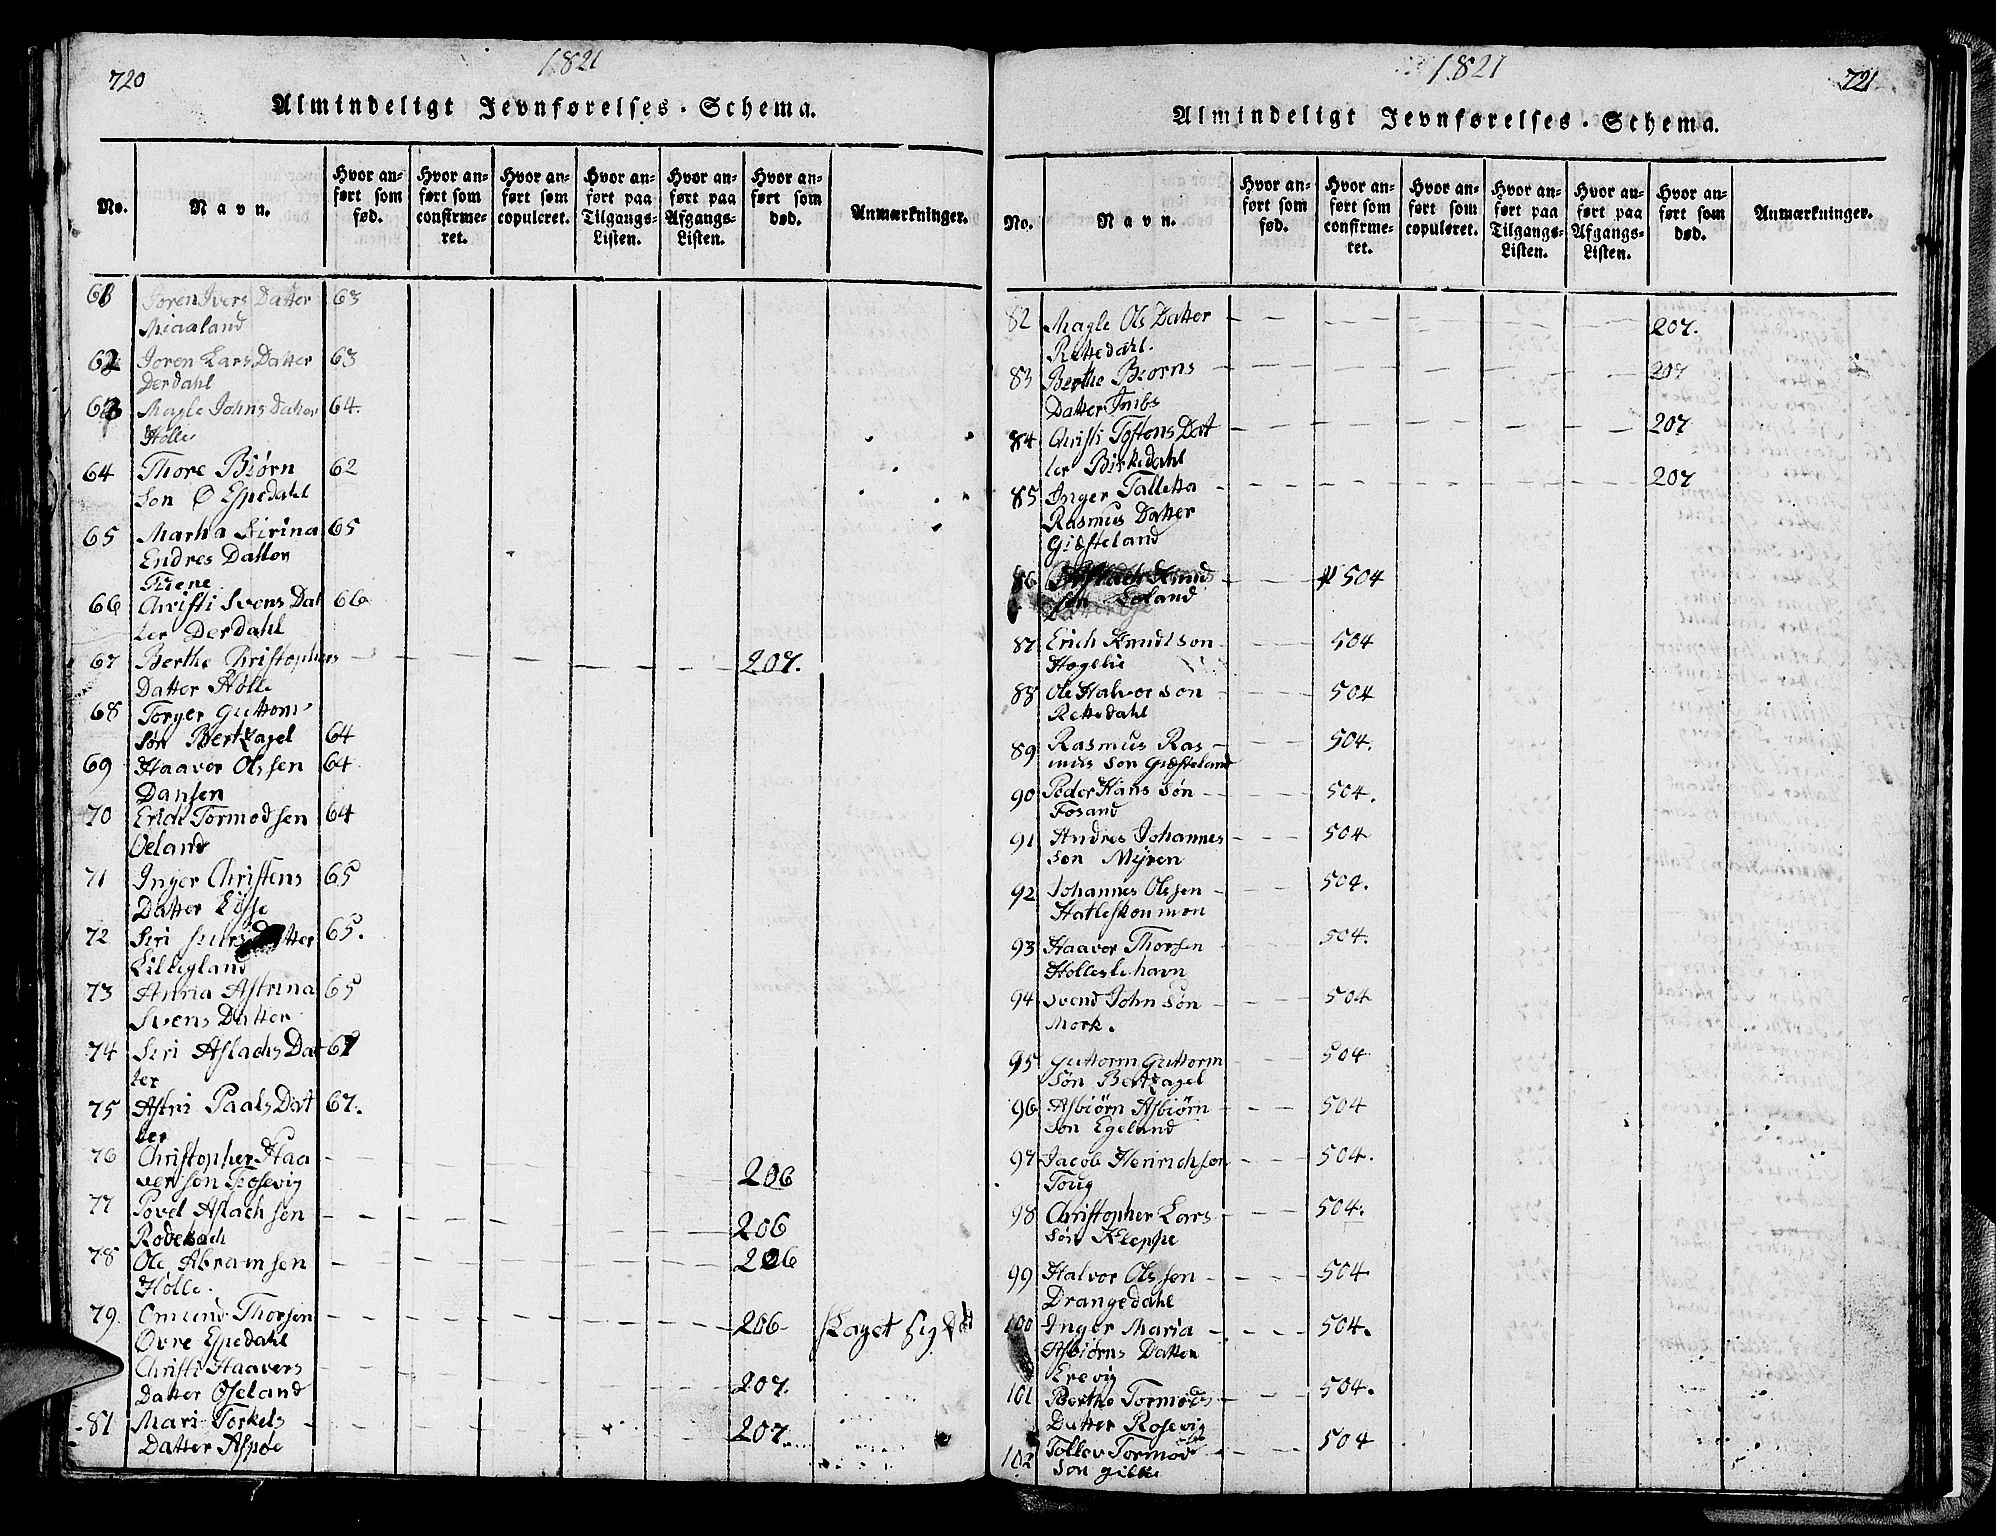 720
1821
Almindeligt Jevnførelses-Schema.
No.
Navn.
Hvor an-
ført som
fød.
Hvor an-
ført som
confirme-
ret.
Hvor an-
ført som
copuleret.
Hvor an-
ført paa
Tilgangs-
Listen.
Hvor an-
ført paa
Afgangs-
Listen.
Hvor an-
ført som
død.
Anmærkninger.
61 Joren Ivers Datter 63
Miaaland
62 Joren Lars Datter 63
Derdahl
63 Magle Johns Datter 64.
Holle
64 Thore Biørn 62
Søn Ø Espedahl
65 Martha Sirina 65
Endres Datter
66 Christi Svens Dat 66
ter Derdahl
67 Berthe Christophers 207.
Datter Hølle
68 Torger Guttom
Søn Bertzagel 64
69 Haavor Olssen 64
Dansen
70 Erich Tormodsen 64
Oeland
71 Inger Christens 65
Datter Lysse
72 Siri Datter 65.
Lillegland
73 Anna Astrina 65
Svens Datter
74 Siri Aslachs Dat 67
ter
75 Astri Paals Dat 67.
ter
76 Christopher Haa
versøn Fosevig 206
77 Povel Aslachsen
Rodebach 206
78 Ole Abramsen 206
Hølle.
79. Omund Thorsen 206
Øvre Espedahl
Christi Haavers
Datter Oseland 207.
81 Mari Torkels 207.
Datter Aspøe
1821
721
Almindeligt Jevnførelses-Schema.
No.
Navn.
Hvor an-
ført som
fød.
Hvor an-
ført som
confirme-
ret.
Hvor an-
ført som
copuleret.
Hvor an-
ført paa
Tilgangs-
Listen.
Hvor an-
ført paa
Afgangs-
Listen.
Hvor an-
ført som
død.
Anmærkninger.
82 Magle Ols Datter 207.
Rettedahl.
83 Berthe Biorns 207
Datter Imbs
84 Christi Toftens Dat 207
ter Birkedahl
85 Inger Talletta 207
Rasmus Datter
Giæsteland
86 Aslach Knud 504
søn Eoland
87 Erich Knudtson 504
Hogelie
88 Ole Halvorson 504
Rettedahl
89 Rasmus Ras 504.
mus Son Giæsteland
90 Peder Hans Søn 504.
Fosand
91 Andres Johannes 504
Son Myren
92 Johannes Olssen 504.
Hatleskonmon
93 Haavor Thorsen 504.
Hollesle havn
94 Svend John Søn 504
Mork.
95 Guttorm Guttorm 504
Søn Bertzagel
96 Asbiørn Asbiørn 504
Son Egeland
97 Jacob Henrichsøn 504.
Toug
98 Christopher Lars 504.
Søn Kleppe
99 Halvor Olssen 504
Drangedahl
100 Inger Maria 504.
Asbiørns Datter
Erevig
101 Berthe Tormods 504.
Datter Rosevig
102 Tollev Tormod 504
Son